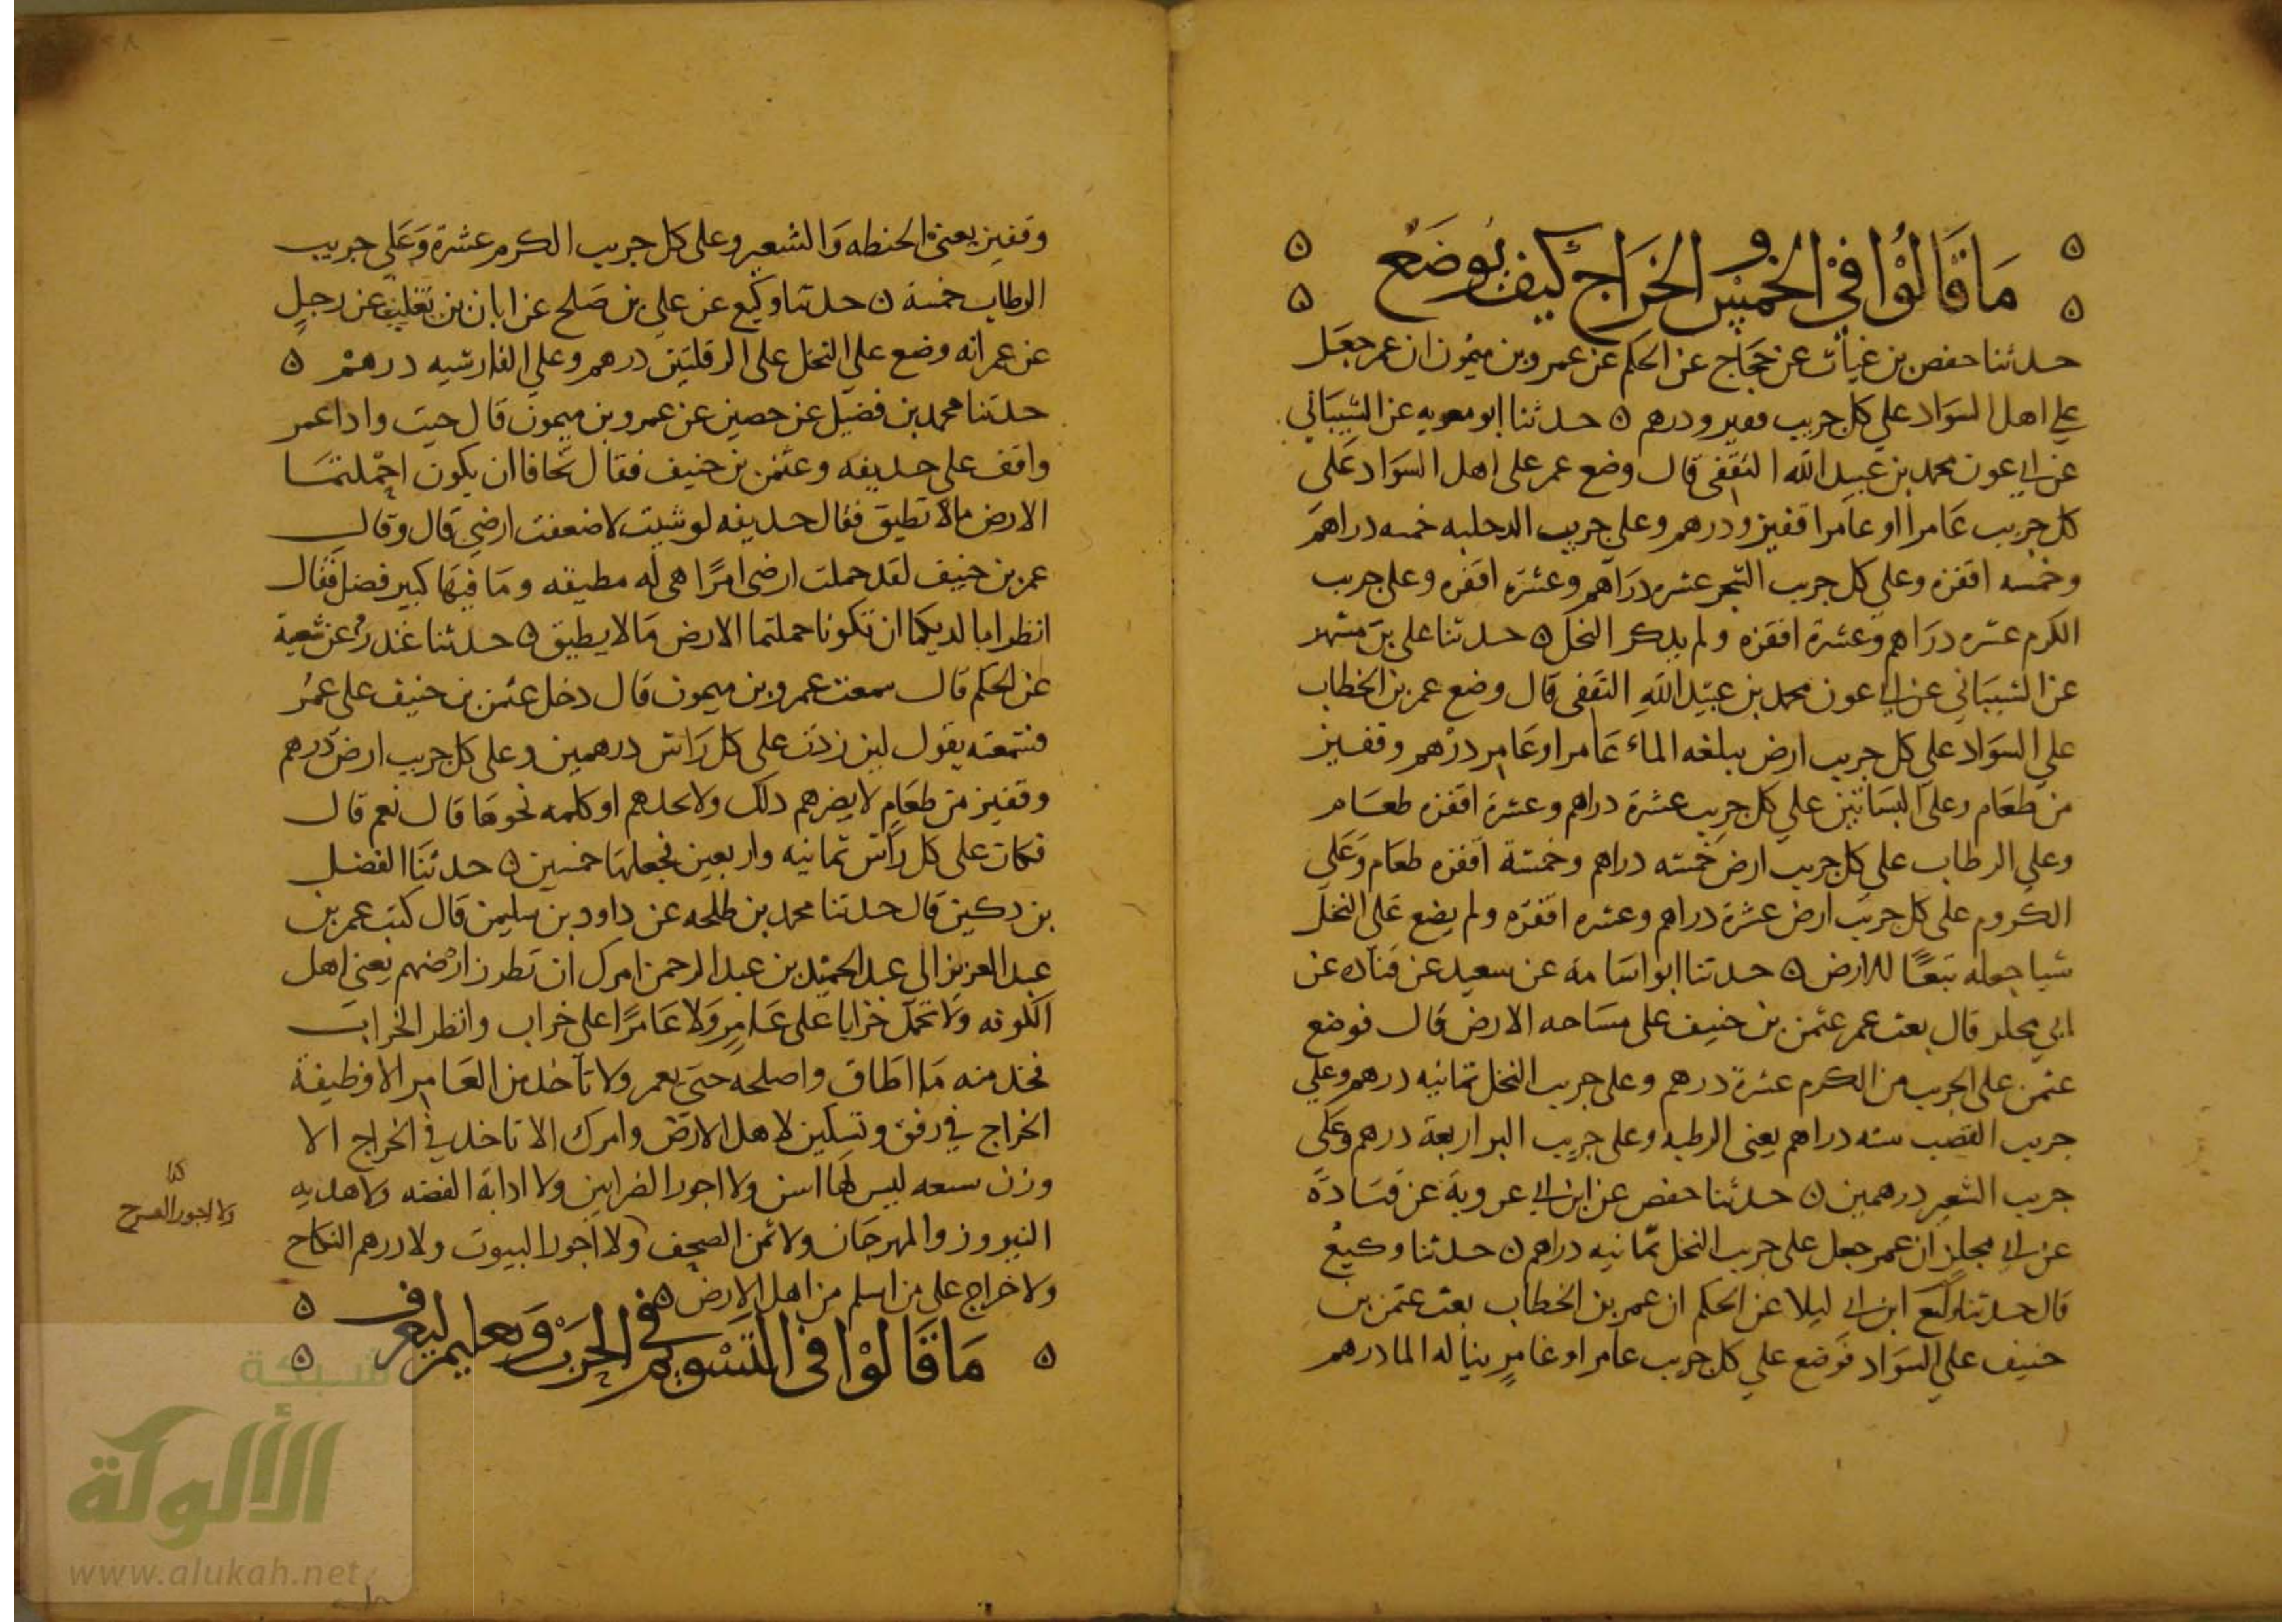 ما قالوا في الخمس و الخراج كيف يوضع
حدثنا حفص بن غياث عن حجاج عن الحكم عن عمرو بن ميمون ان عمر جعل
على اهل السواد على كل جريب قفيز ودرهم ه حدثنا ابو معويه عن الشيباني
عن ابي عون محمد بن عبيد الله الثقفي قال وضع عمر على اهل السواد على
كل جريب عامرا او غامرا قفيز ودرهم وعلى جريب الرطبه خمسه دراهم
وخمسه اقفزه وعلى كل جريب الشجر عشره دراهم وعشرة اقفزه وعلى جريب
الكرم عشره دراهم وعشرة اقفزه ولم يذكر النخل ه حدثنا على بن مسهر
عن الشيباني عن ابي عون محمد بن عبيد الله الثقفي قال وضع عمر بن الخطاب
على السواد على كل جريب ارض يبلغه الماء عامرا وغامر درهم وقفيز
من طعام وعلى البساتين على كل جريب عشرة دراهم وعشرة اقفزه طعام
وعلى الرطاب على كل جريب ارض خمسه دراهم وخمسة اقفزه طعام وعلى
الكروم على كل جريب ارض عشرة دراهم وعشره اقفزه ولم يضع على النخل
شيا جعله تبعا للارض ه حدثنا ابو اسامة عن سعيد عن قتاده عن
ابي مجلز قال بعث عمر عثمن بن حنيف على مساحه الارض قال فوضع
عثمن على الجريب من الكرم عشرة درهم وعلى جريب النخل ثمانيه درهم وعلى
جريب القصب سته دراهم يعني الرطبه وعلى جريب البر اربعة درهم وعلى
جريب الشعير درهمين ه حدثنا حفص عن ابن ابي عروبة عن قتادة
عن ابي مجلز ان عمر جعل على جريب النخل ثمانيه دراهم ه حدثنا وكيع
قال حدثنا وكيع ابن ابي ليلا عن الحكم ان عمر بن الخطاب بعث عثمن بن
حنيف على السواد فوضع على كل جريب عامرا وغامر يناله الما درهم
وقفيز يعني الحنطه والشعير وعلى كل جريب الكرم عشرة وعلى جريب
الرطاب خمسة ه حدثنا وكيع عن علي بن صلح عن ابان بن تغلب عن رجل
عن عمر انه وضع على النخل على الرقلتين درهم وعلى الفارسيه درهم ه
حدثنا محمد بن فضيل عن حصين عن عمرو بن ميمون قال جيت واذا عمر
واقف على حذيفه وعثمن بن حنيف فقال تخافا ان يكون احملتما
الارض مالا تطيق فقال حذيفه لو شيت لاضعفت ارضي قال وقال
عمر بن حنيف لقد حملت ارضى امرا هى له مطيقه وما فيها كبير فضل فقال
انظرا ما لديكما ان تكونا حملتما الارض مالا يطيق ه حدثنا غندر عن شعبة
عن الحكم قال سمعت عمرو بن ميمون قال دخل عثمن بن حنيف على عمر
فسمعته يقول لين زدت على كل راس درهمين وعلى كل جريب ارض درهم
وقفيز من طعام لا يضرهم ذلك ولا يجدهم او كلمه نحوها قال نعم قال
فكان على كل راس ثمانيه واربعين فجعلها خمسين ه حدثنا الفضل
بن دكين قال حدثنا محمد بن طلحه عن داود بن سليمن قال كتب عمر بن
عبد العزيز الى عبد الحميد بن عبد الرحمن امرك ان تطرز ارضهم يعني اهل
الكوفه ولا تحمل خرابا على عامر ولا عامرا على خراب وانظر الخراب
فخذ منه ما اطاق واصلحه حتى يعمر ولا تاخذ من العامر الا وظيفة
الخراج في رفق وتسكين لاهل الارض وامرك الا تاخذ في الخراج الا
وزن سبعه ليس لها اسن ولا اجور الضرابين ولا اذابة الفضه ولا هديه
النيروز والمهرجان ولا ثمن الصحف ولا اجور البيوت ولا درهم النكاح
ولا خراج على من اسلم من اهل الارض ه
ما قالوا في التسويم في الحرب وتعليم ليعرف
كذا
ولا اجور
شبكة
الألوكة
www.alukah.net